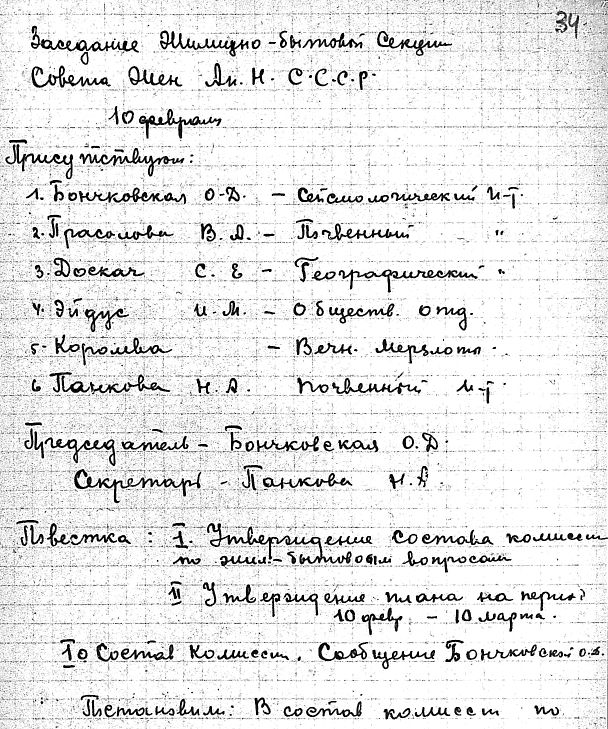 34
Заседание Жилищно-бытовой Секции
Совета Жен Ак. Н. С.С.С.Р.
10 февраля
Присутствуют:
1. Бончковская О.Д. – Сейсмологический И-т.
2. Прасолова В.А. – Почвенный "
3. Доскач С.Е – Географический "
4. Эйдус И.М. – Обществ. отд.
5. Королева – Вечн. Мерзлоты.
6 Панкова Н.А. Почвенный И-т.
Председатель – Бончковская О.Д.
Секретарь – Панкова Н.А.
Повестка: I. Утверждение состава комиссии
по жил-бытовым вопросам
II Утверждение плана на период
10 февр – 10 марта.
Io Состав Комиссии. Сообщение Бончковской О.Д.
Постановили: В состав комиссии по